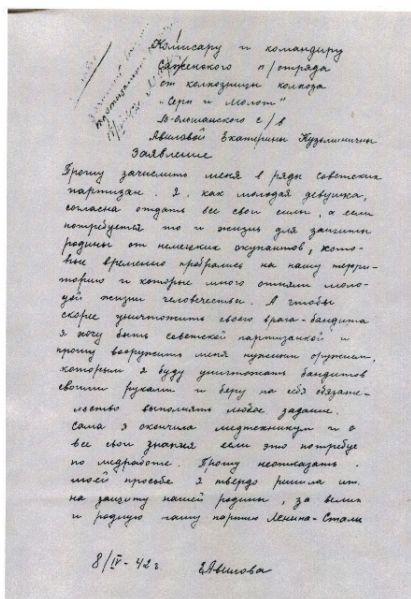 Комисару и командиру
Саженского п/отряда
от колхозницы колхоза
"Серп и Молот"
с/в
Авиловой Екатерины Кузьминичны
Заявление
Прошу зачислить меня в ряды советских
партизан. Я, как молодая девушка,
согласна отдать все свои силы, а если
потребуется то и жизнь для защиты
родины от немецких окупантов, кото-
рые временно пребрались на нашу терри-
торию и которые много отняли моло-
дой жизни человечества. А чтобы
скорее уничтожить своего врага-бандита
я хочу быть советской партизанкой и
прошу вооружить меня нужным оружием,
которым я буду уничтожать бандитов
своими руками и беру на себя обязате-
льство выполнять любое задание.
Сама я окончила медтехникум и о
все свои знания если это потребуе
по медработе. Прошу неотказать
моей просьбе я твердо решила ит.
на защиту нашей родины, за велик
и родную нашу партию Ленина-Стали
8/IV-42 г. ЕАвилова